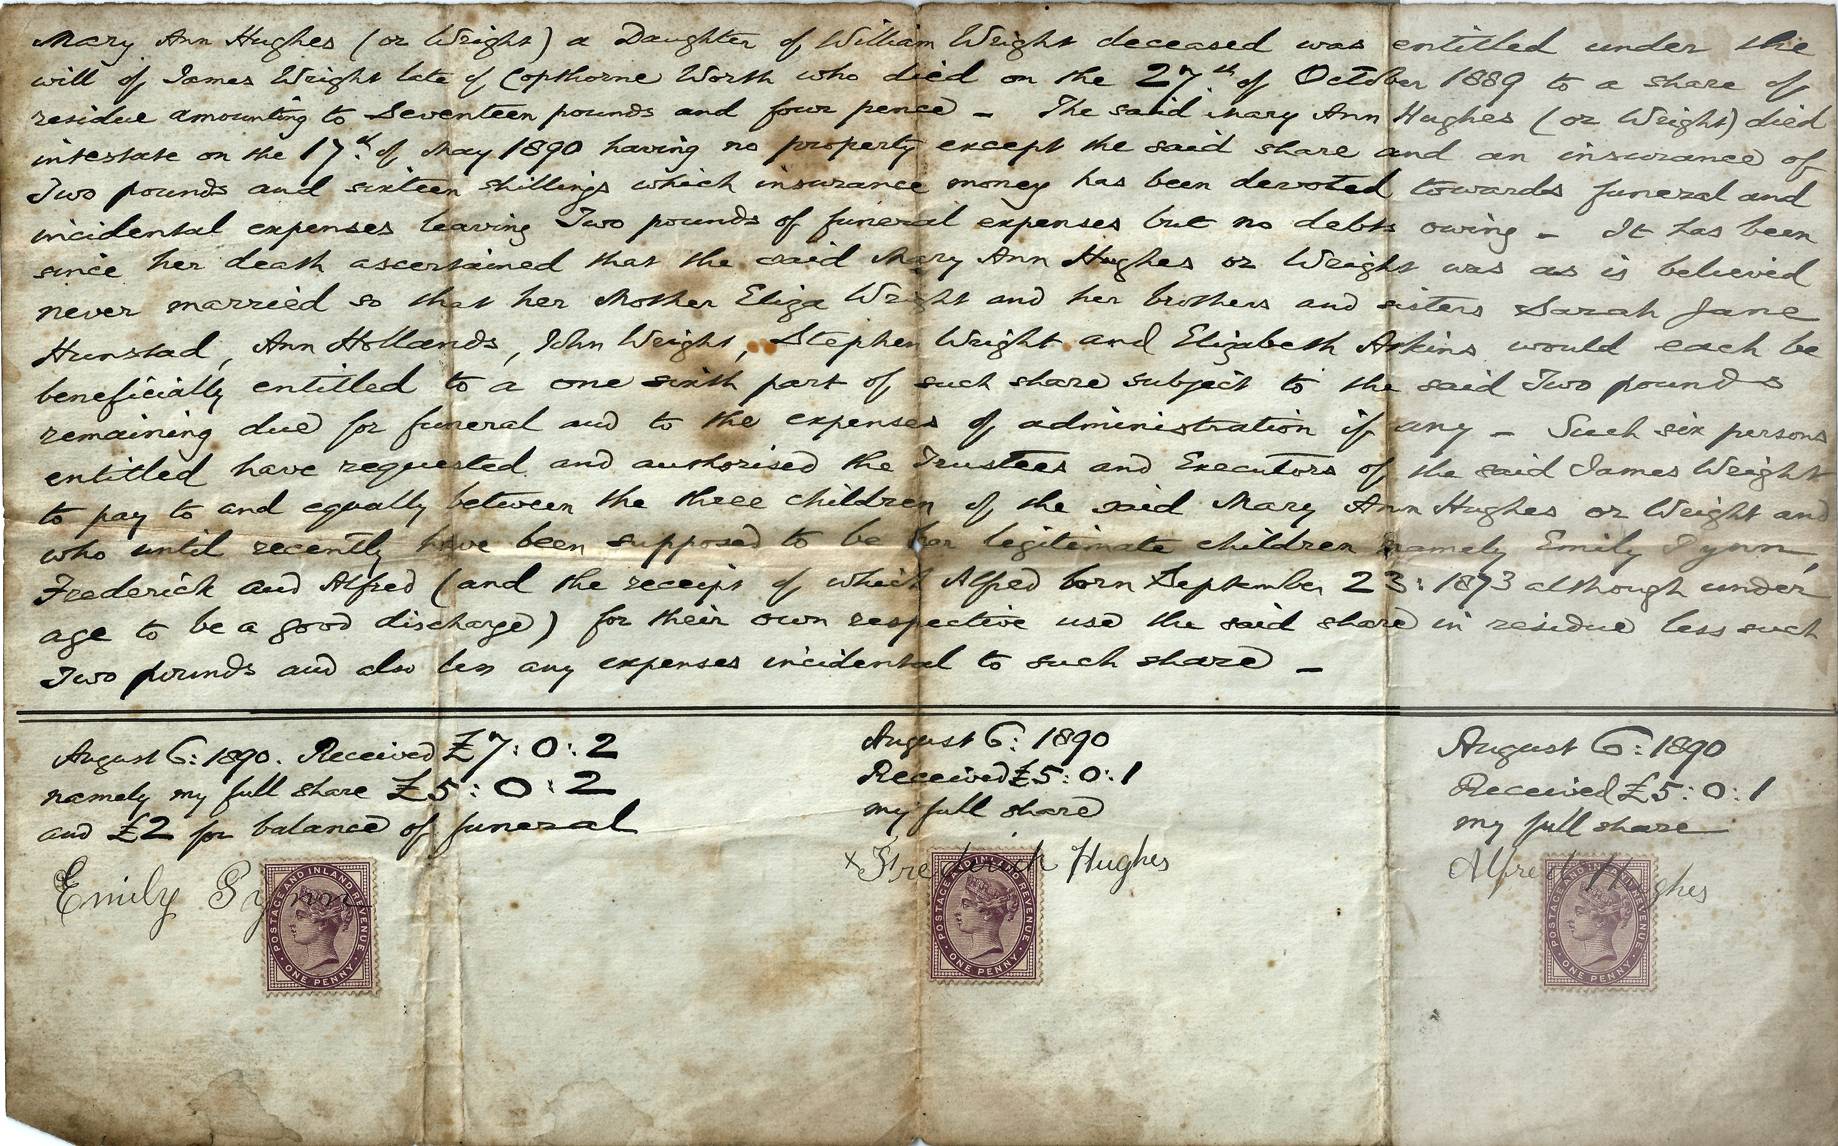 Mary Ann Hughes (or Wright) a Daughter of William Wright deceased was entitled under the
will of James Wright late of Copthorne Worth who died on the 27th of October 1889 to a share of
residue amounting to Seventeen pounds and four pence - The said Mary Ann Hughes (or Wright) died
intestate on the 17th of May 1890 having no property except the said share and an insurance of
Two pounds and sixteen shillings which insurance money has been devoted towards funeral and
incidental expenses leaving Two pounds of funeral expenses but no debts owing - It has been
since her death ascertained that the said Mary Ann Hughes or Wright was as is believed
never married so that her Mother Eliza Wright and her brothers and sisters Sarah Jane
Hunstad, Ann Hollands, John Wright, Stephen Wright and Elizabeth Askins would each be
beneficially entitled to a one sixth part of such share subject to the said Two pounds
remaining due for funeral and to the expenses of administration if any - Such six persons
entitled have requested and authorised the Trustees and Executors of the said James Wright
to pay to and equally between the three children of the said Mary Ann Hughes or Wright and
who until recently have been supposed to be her legitimate children namely Emily Pynn,
Frederick and Alfred (and the receipt of which Alfred born September 23: 1873 although under
age to be a good discharge) for their own respective use the said share in residue less such
Two pounds and also less any expenses incidental to such share -
August 6: 1890. Received £7:0:2
namely my full share £5:0:2
and £2 for balance of funeral
Emily Pynn
POSTAGE AND INLAND REVENUE
ONE PENNY
August 6: 1890
Received £5:0:1
my full share
x Frederick Hughes
POSTAGE AND INLAND REVENUE
ONE PENNY
August 6: 1890
Received £5:0:1
my full share
Alfred Hughes
POSTAGE AND INLAND REVENUE
ONE PENNY